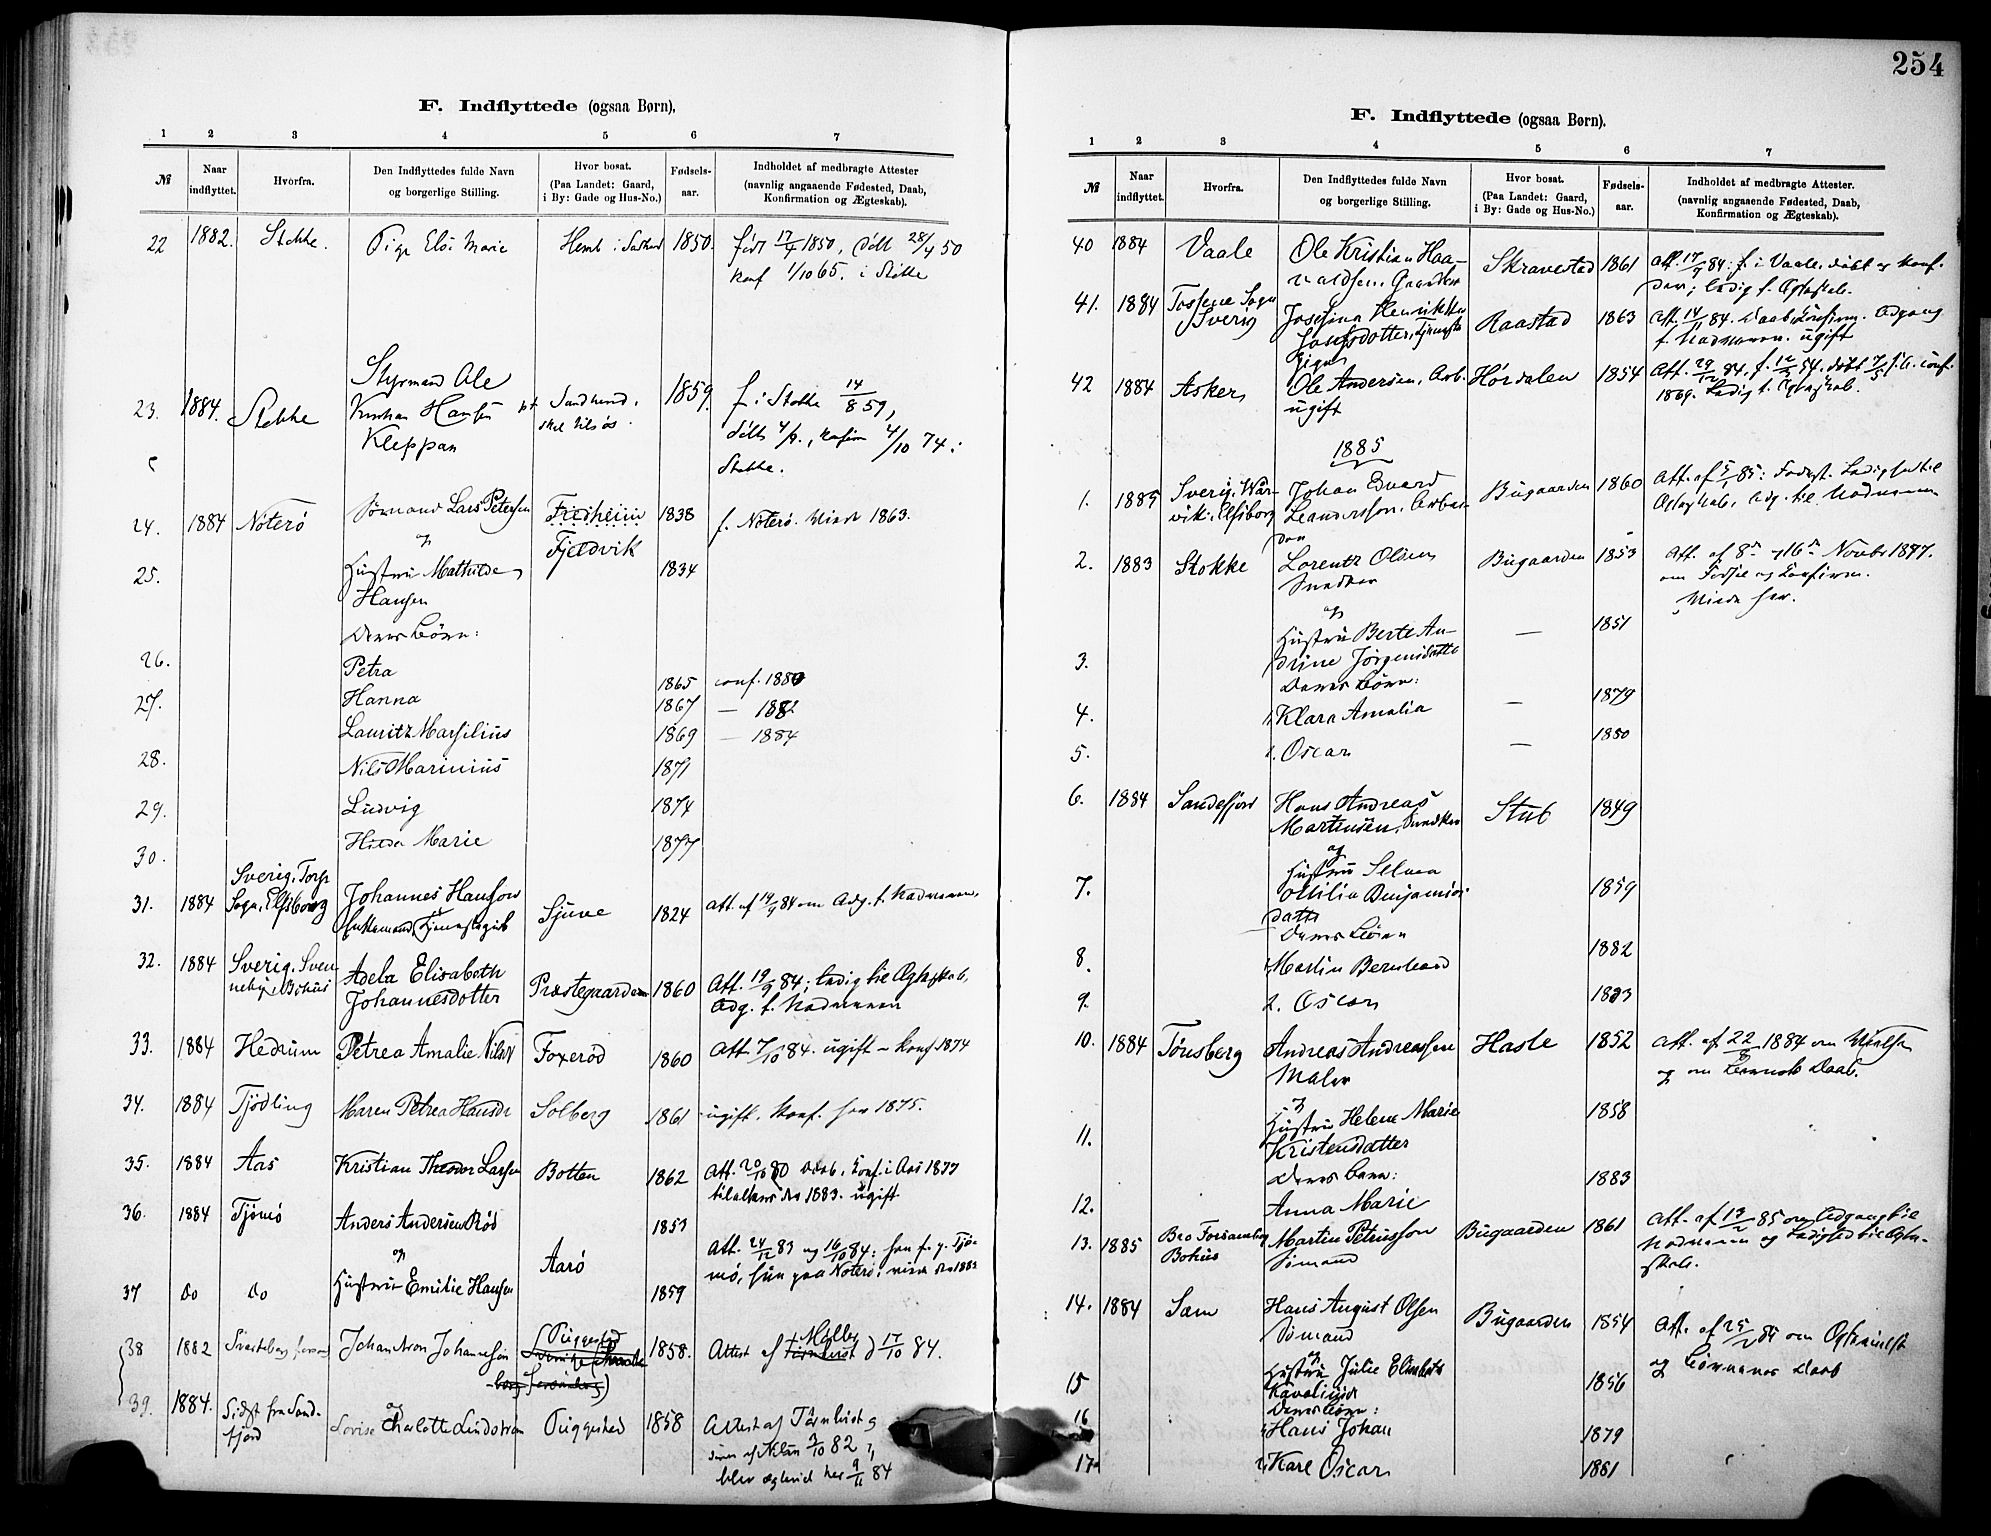 F. Indflyttede (ogsaa Børn),
1 2 3 4 5 6 7
№ Naar indflyttet. Hvorfra. Den Indflyttedes fulde Navn og borgerlige Stilling. Hvor bosat. (Paa Landet: Gaard, i By: Gade og Hus-No.) Fødsels-aar. Indholdet af medbragte Attester (navnlig angaaende Fødested, Daab, Konfirmation og Ægteskab).
22 1882. Stokke. Pige Else Marie 1850. født 17/4 1850, døbt 28/4 50
konf 1/10 65. i Stokke
Styrmand Ole
23. 1884. Stokke Kristian Hansen 1859. f. i Stokke 14/8 59,
Kleppan 4/10 74 i
Stokke.
24. 1884 Noterø Sømand Lars Petersen Fredheim 1838 f. Noterø. Viede 1863.
og Fjeldvik
25. Hustru Mathilde 1834
Hansen
Deres Børn:
26. Petra 1865 conf. 1880
27. Hanna 1867 — 1882
Lauritz Marsilius 1869 — 1884
28. Nils Marinius 1871
29. Ludvig 1874
30. Hilda Marie 1877
Sverig, Torp
31. 1884 Sogn, Elfsborg Johannes Hansson Sjuve 1824 Att. af 14/9 84 om Adg. t. Nadveren.
32. 1884 Sverig, Sven- Adela Elisabeth Præstegaarden 1860 Att. 19/9 84; ledig til Ægteskab,
neby, Bohus Johannesdotter Adg. t. Nadveren
33. 1884 Hedrum Petrea Amalie Foxerød 1860 Att. 7/10 84. ugift – Konf 1874
34. 1884 Tjødling Maren Petrea Hansdr Solberg 1861 ugift. Konf. her 1875.
35. 1884 Aas Kristian Theodor Larsen Botten 1862 Att. 20/10 80 Daab, Konf. i Aas 1877
1883. ugift
36. 1884 Tjømø Anders Andersen Rød 1853
og Aarø Att. 24/12 83 og 16/10 84: han f. p. Tjø-
37 do do Hustru Emilie Hansen 1859 mø, hun paa Noterø; viede
38 1882 Johan Aron Johannesson Puggestad 1858. Attest af Møller d 17/10 84.
39. 1884. Sidst fra Sand- og Lovise Charlotte Lindstrøm Puggestad 1858 Attest af Törnkvist
fjord 3/10 82
blev ægteviet her 9/11 84
254
F. Indflyttede (ogsaa Børn).
1 2 3 4 5 6 7
№ Naar indflyttet. Hvorfra. Den Indflyttedes fulde Navn og borgerlige Stilling. Hvor bosat. (Paa Landet: Gaard, i By: Gade og Hus-No.) Fødsels-aar. Indholdet af medbragte Attester. (navnlig angaaende Fødested, Daab, Konfirmation og Ægteskab).
40 1884 Vaale Ole Kristian Haa- Skravestad 1861 Att. 17/9 84: f. i Vaale, døbt og konf.
valdsen, ledig t. Ægteskab.
41. 1884 Tossene Sogn Josefina Henriketta Raastad 1863 Att. 14/11 84. Daab, Confirm. Adgang
Sverig Josefsdotter, Tjeneste- t. Nadveren. ugift
pige
42 1884 Asker Ole Andersen, Arb. Hørdalen 1854 Att. 29/12 84. døbt conf.
ugift 1869. Ledig t. Ægteskab.
1885
1. 1885 Sverig, War- Johan Edvard Bugaarden 1860 Att. af 5/1 85: Fødest. Ledighed til
vik, Elfsborg Leandersson, Arbei- Ægteskab, Adg. til Nadveren
der
2. 1883 Stokke Lorentz Olsen Bugaarden 1853 Att. af 8de og 16de Novbr 1887.
Snedker om Fødsel og Confirm.
og Viede her.
Hustru Berte An- — 1851
3. drine Jørgensdatter
Deres Børn:
4. 1, Klara Amalia — 1879
5. 2. Oscar — 1880
6. 1884 Sandefjord Hans Andreas Stub 1849
Martinsen, Snedker
og
7. Hustru Selma 1859
Otilia Benjamins-
datter
Deres Børn
8. 1 Martin Bernhard 1882
9. 2. Oscar 1883
10. 1884 Tønsberg Andreas Andreassen Hasle 1852 Att. af 22/8 1884 om Vielse
Maler og om Barnets Daab.
og
11. Hustru Helene Marie 1858
Kristensdatter
Deres Barn:
12. Anna Marie 1883
13. 1885 Bro Forsamling Martin Petrusson Bugaarden 1861 Att. af 13/2 85 om Adgang til
Bohus Sømand Nadveren og Ledighed til Ægte-
skab.
14. 1884 Sæm Hans August Olsen Bugaarden 1854 Att. af 25/2 85 om Ægtevielse
Sømand og Børnenes Daab
og
15 Hustru Julie Elisabeth 1856
Deres Børn:
16 1, Hans Johan 1879
17 2, Karl Oscar 1881